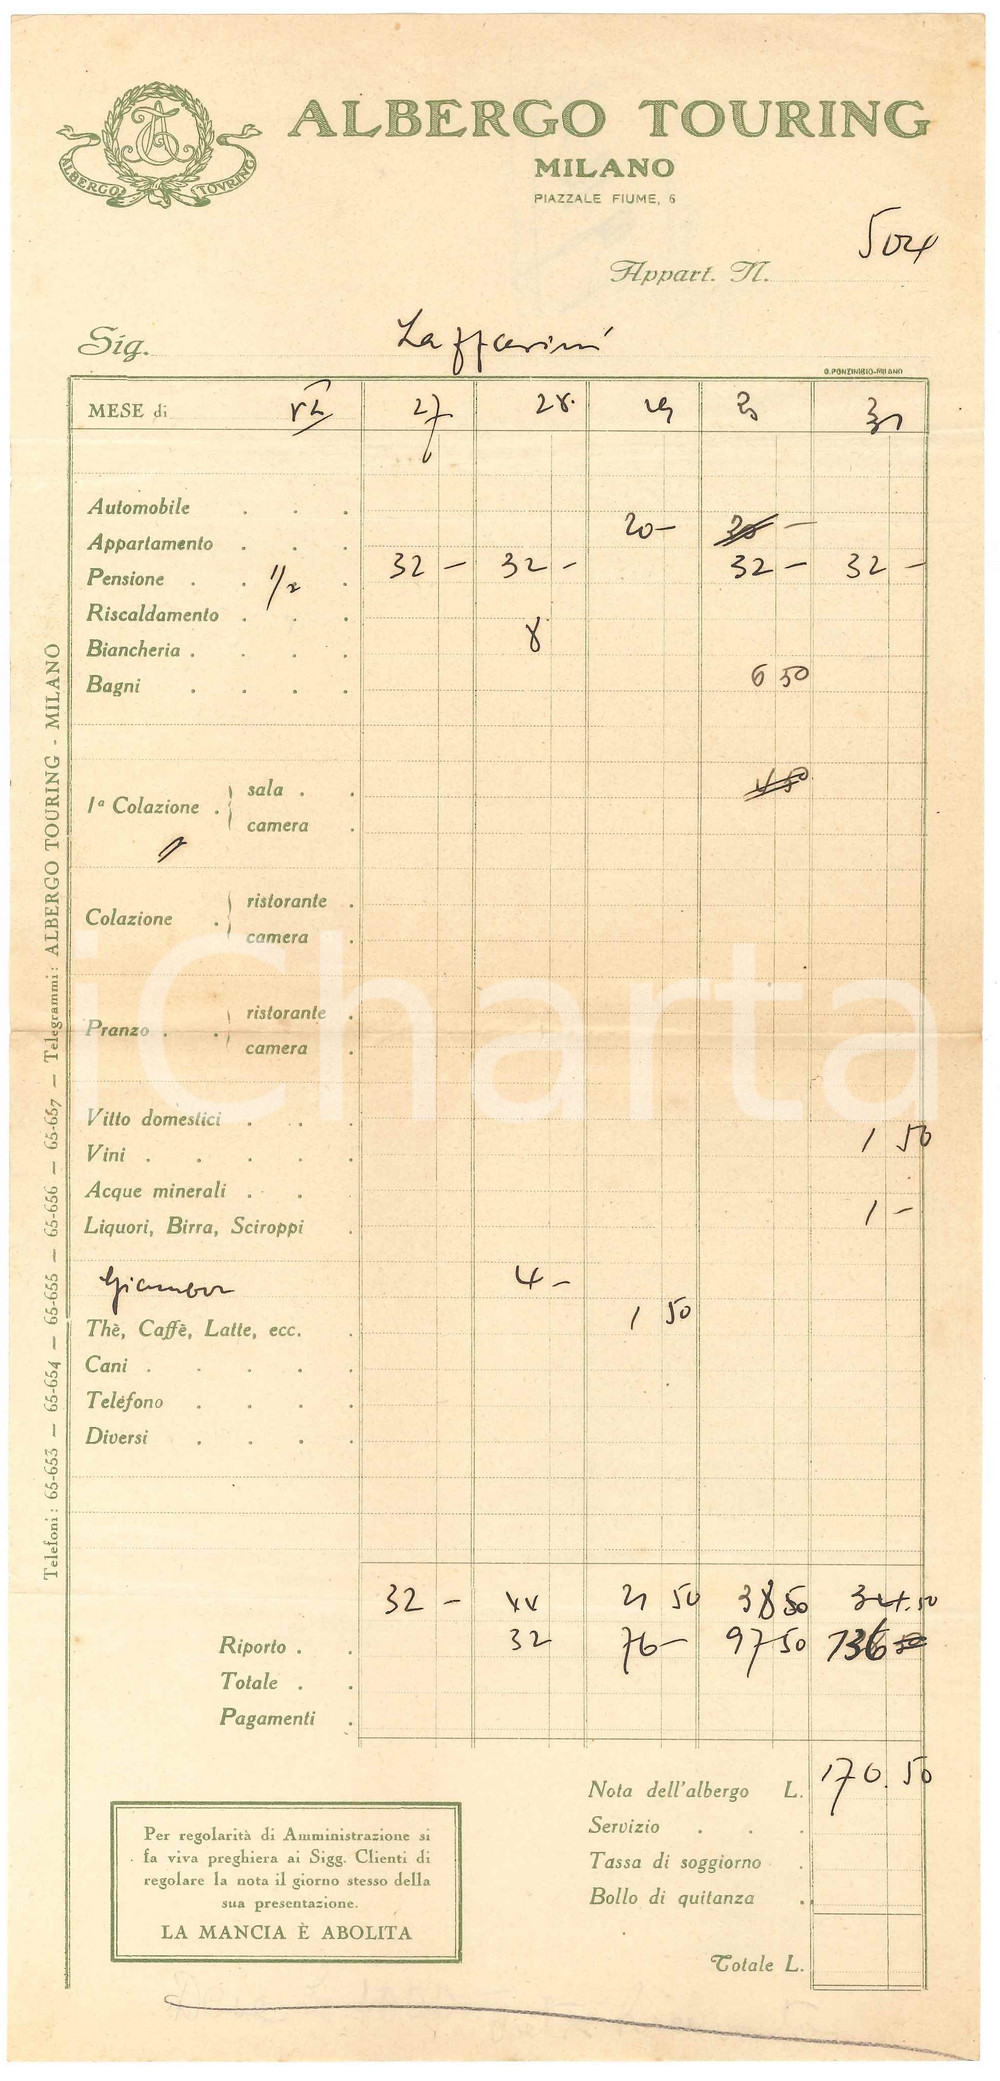 ALBERGO TOURING
ALBERGO TOURING
MILANO
PIAZZALE FIUME, 6
Appart. N. 504
Sig. Lazzarini
G. PONZINIBIO-MILANO
MESE di 27 28. 29 31
Automobile
Appartamento 20 —
Pensione 1/2 32 — 32 — 32 — 32 —
Riscaldamento
Biancheria 8
Bagni 6 50
1ª Colazione sala
camera
Colazione ristorante
camera
Pranzo ristorante
camera
Vitto domestici
Vini 1 50
Acque minerali
Liquori, Birra, Sciroppi 1 —
4 —
Thè, Caffè, Latte, ecc. 1 50
Cani
Teléfono
Diversi
32 — 44 21 50 38 50 34.50
Riporto 32 76 — 97 50 136
Totale
Pagamenti
Nota dell'albergo L. 170.50
Servizio
Tassa di soggiorno
Bollo di quitanza
Totale L.
Per regolarità di Amministrazione si
fa viva preghiera ai Sigg. Clienti di
regolare la nota il giorno stesso della
sua presentazione.
LA MANCIA È ABOLITA
Telefoni: 65-653 — 65-654 — 65-655 — 65-656 — 65-657 — Telegrammi: ALBERGO TOURING - MILANO
iCharta